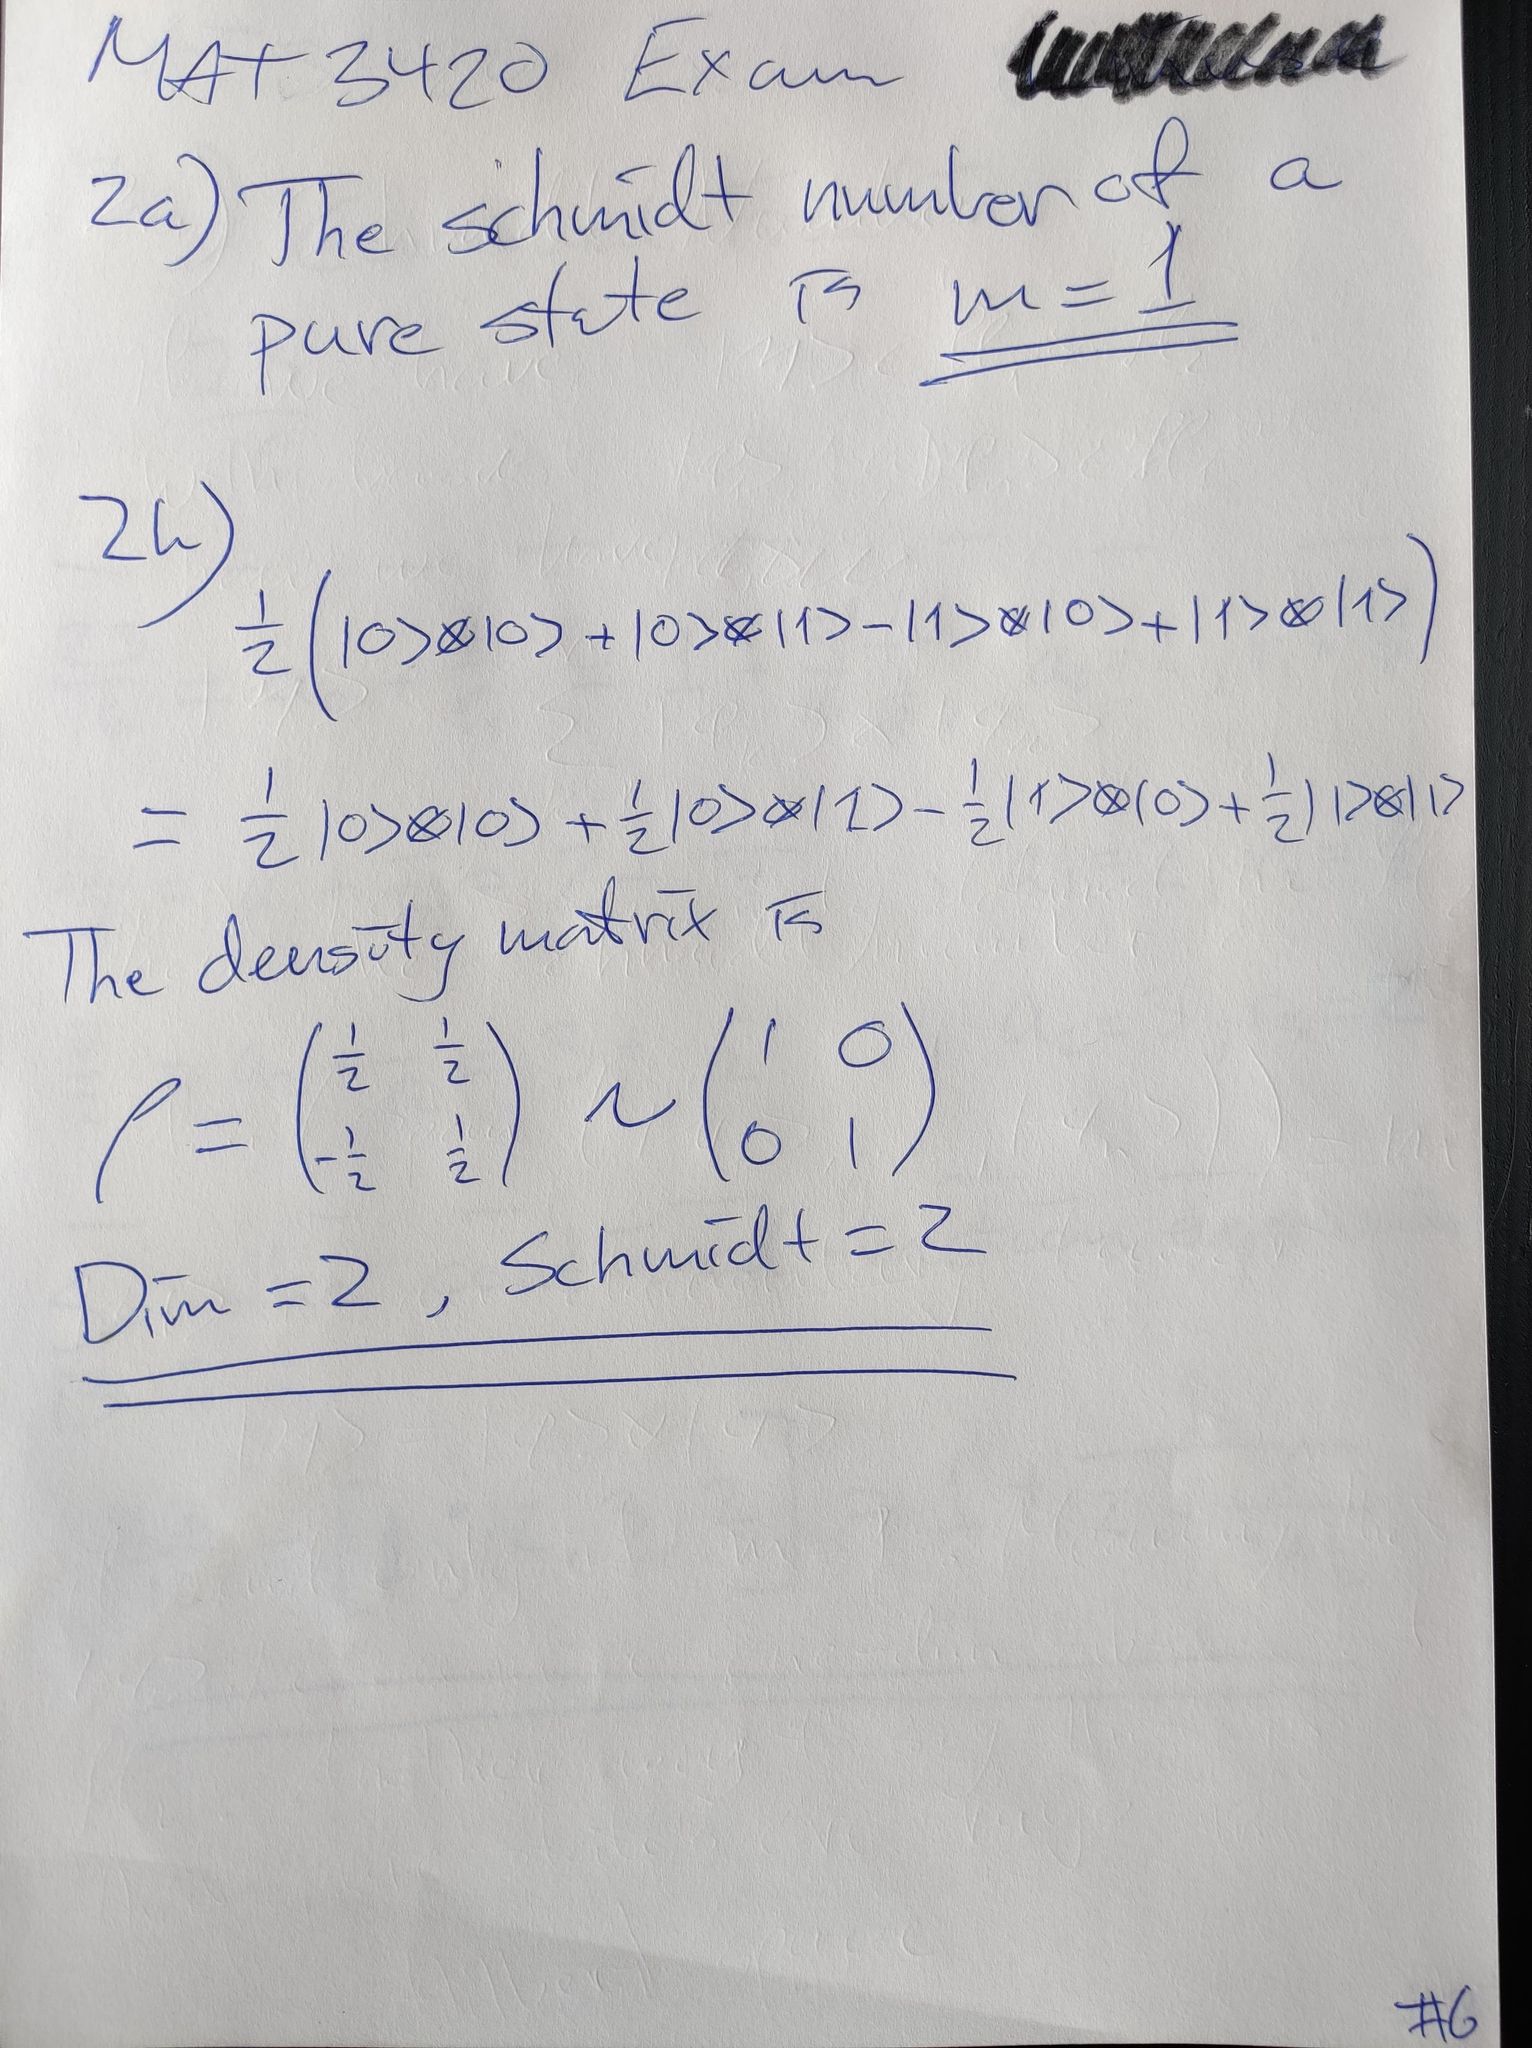 MAT 3420 Exam
2a) The schmidt number of a
pure state is m = 1
2b)
1/2 (|0>⊗|0> + |0>⊗|1> - |1>⊗|0> + |1>⊗|1>)
= 1/2 |0>⊗|0> + 1/2 |0>⊗|1> - 1/2 |1>⊗|0> + 1/2 |1>⊗|1>
The density matrix is
ρ = (1/2 1/2
-1/2 1/2) ~ (1 0
0 1)
Dim = 2, Schmidt = 2
#6